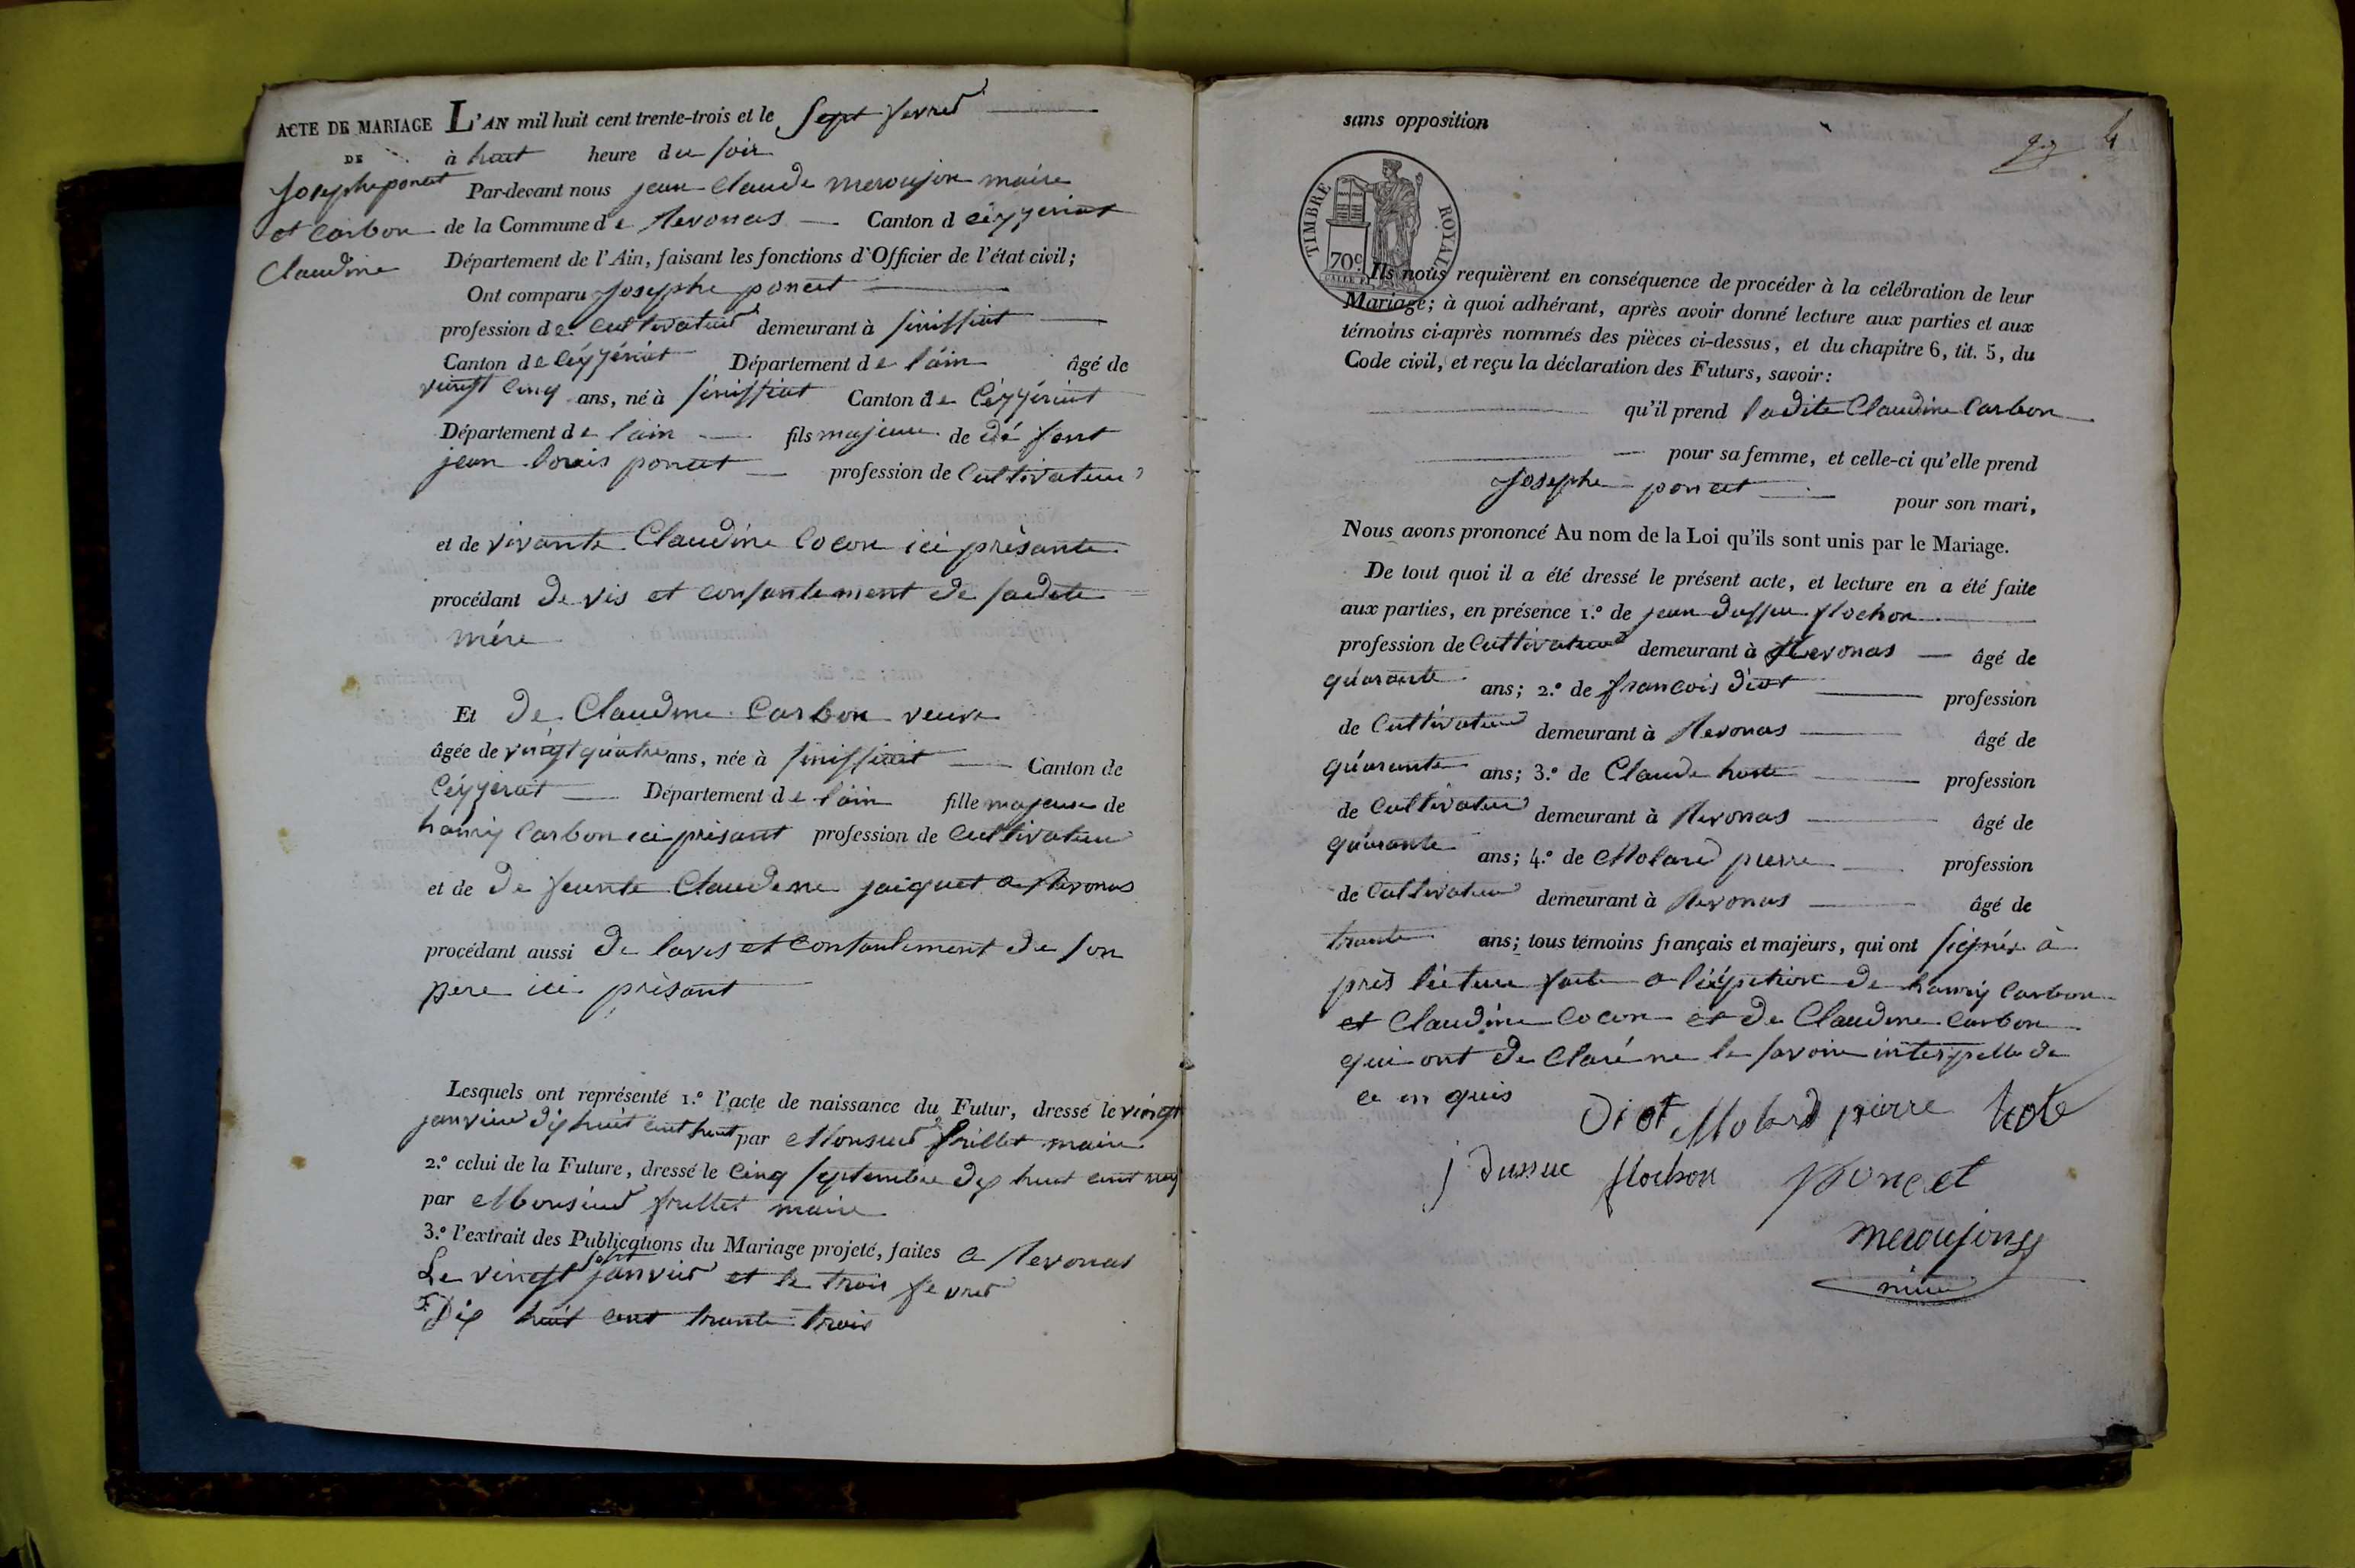 ACTE DE MARIAGE
DE
Josephe poncet
et Carbon
Claudine
L'AN mil huit cent trente-trois et le Sept fevrier
à huit heure du soir
Par-devant nous jean Claude meroujon maire
de la Commune de Revonas Canton d Céyzeriat
Département de l'Ain, faisant les fonctions d'Officier de l'état civil;
Ont comparu Josephe poncet
profession de Cultivateur demeurant à sinissiat
Canton de Céyzériat Département de l'ain âgé de
vingt Cinq ans, né à sénissiat Canton de Céyzériat
Département de lain fils majeur de dé font
jean louis poncet profession de Cultivateur
et de vivante Claudine Cocon ici présante
procédant de vis et consantement de sadite
mére
Et de Claudine Carbon veuve
âgée de vingt quatre ans, née à sinissiat Canton de
Céyzeriat Département de l'ain fille majeure de
hanry Carbon ici présant profession de Cultivateur
et de de feunte Claudine jaiquet a Revonas
procédant aussi de lavis et Contantement de son
pere ici présant
Lesquels ont représenté 1.º l'acte de naissance du Futur, dressé le vingt
janvier dix huit cent huit par Monsieur frillet maire
2.º celui de la Future, dressé le Cinq septembre dix huit cent neuf
par Monsieur frillet maire
3.º l'extrait des Publications du Mariage projeté, faites a Revonas
Le vingt sept janvier et le trois fevrier
Dix huit cent trante trois
4
sans opposition
TIMBRE ROYAL
70c
Ils nous requièrent en conséquence de procéder à la célébration de leur
Mariage; à quoi adhérant, après avoir donné lecture aux parties et aux
témoins ci-après nommés des pièces ci-dessus, et du chapitre 6, tit. 5, du
Code civil, et reçu la déclaration des Futurs, savoir:
qu'il prend ladite Claudine Carbon
pour sa femme, et celle-ci qu'elle prend
Josephe poncet pour son mari,
Nous avons prononcé Au nom de la Loi qu'ils sont unis par le Mariage.
De tout quoi il a été dressé le présent acte, et lecture en a été faite
aux parties, en présence 1.º de jean dussuc flochon
profession de Cultivateur demeurant à Revonas âgé de
quarante ans; 2.º de francois diot profession
de Cultivateur demeurant à Revonas âgé de
quarante ans; 3.º de Claude hoste profession
de Cultivateur demeurant à Revonas âgé de
quarante ans; 4.º de Molard pierre profession
de Cultivateur demeurant à Revonas âgé de
trante ans; tous témoins français et majeurs, qui ont signés à
près lécture faite a léxpetion de hanry Carbon
et Claudine Cocon et de Claudine Carbon
qui ont de Claré ne le savoir interpelle de
ce en quis
Diot Molard pierre hote
j dussuc flochon poncet
meroujon
maire